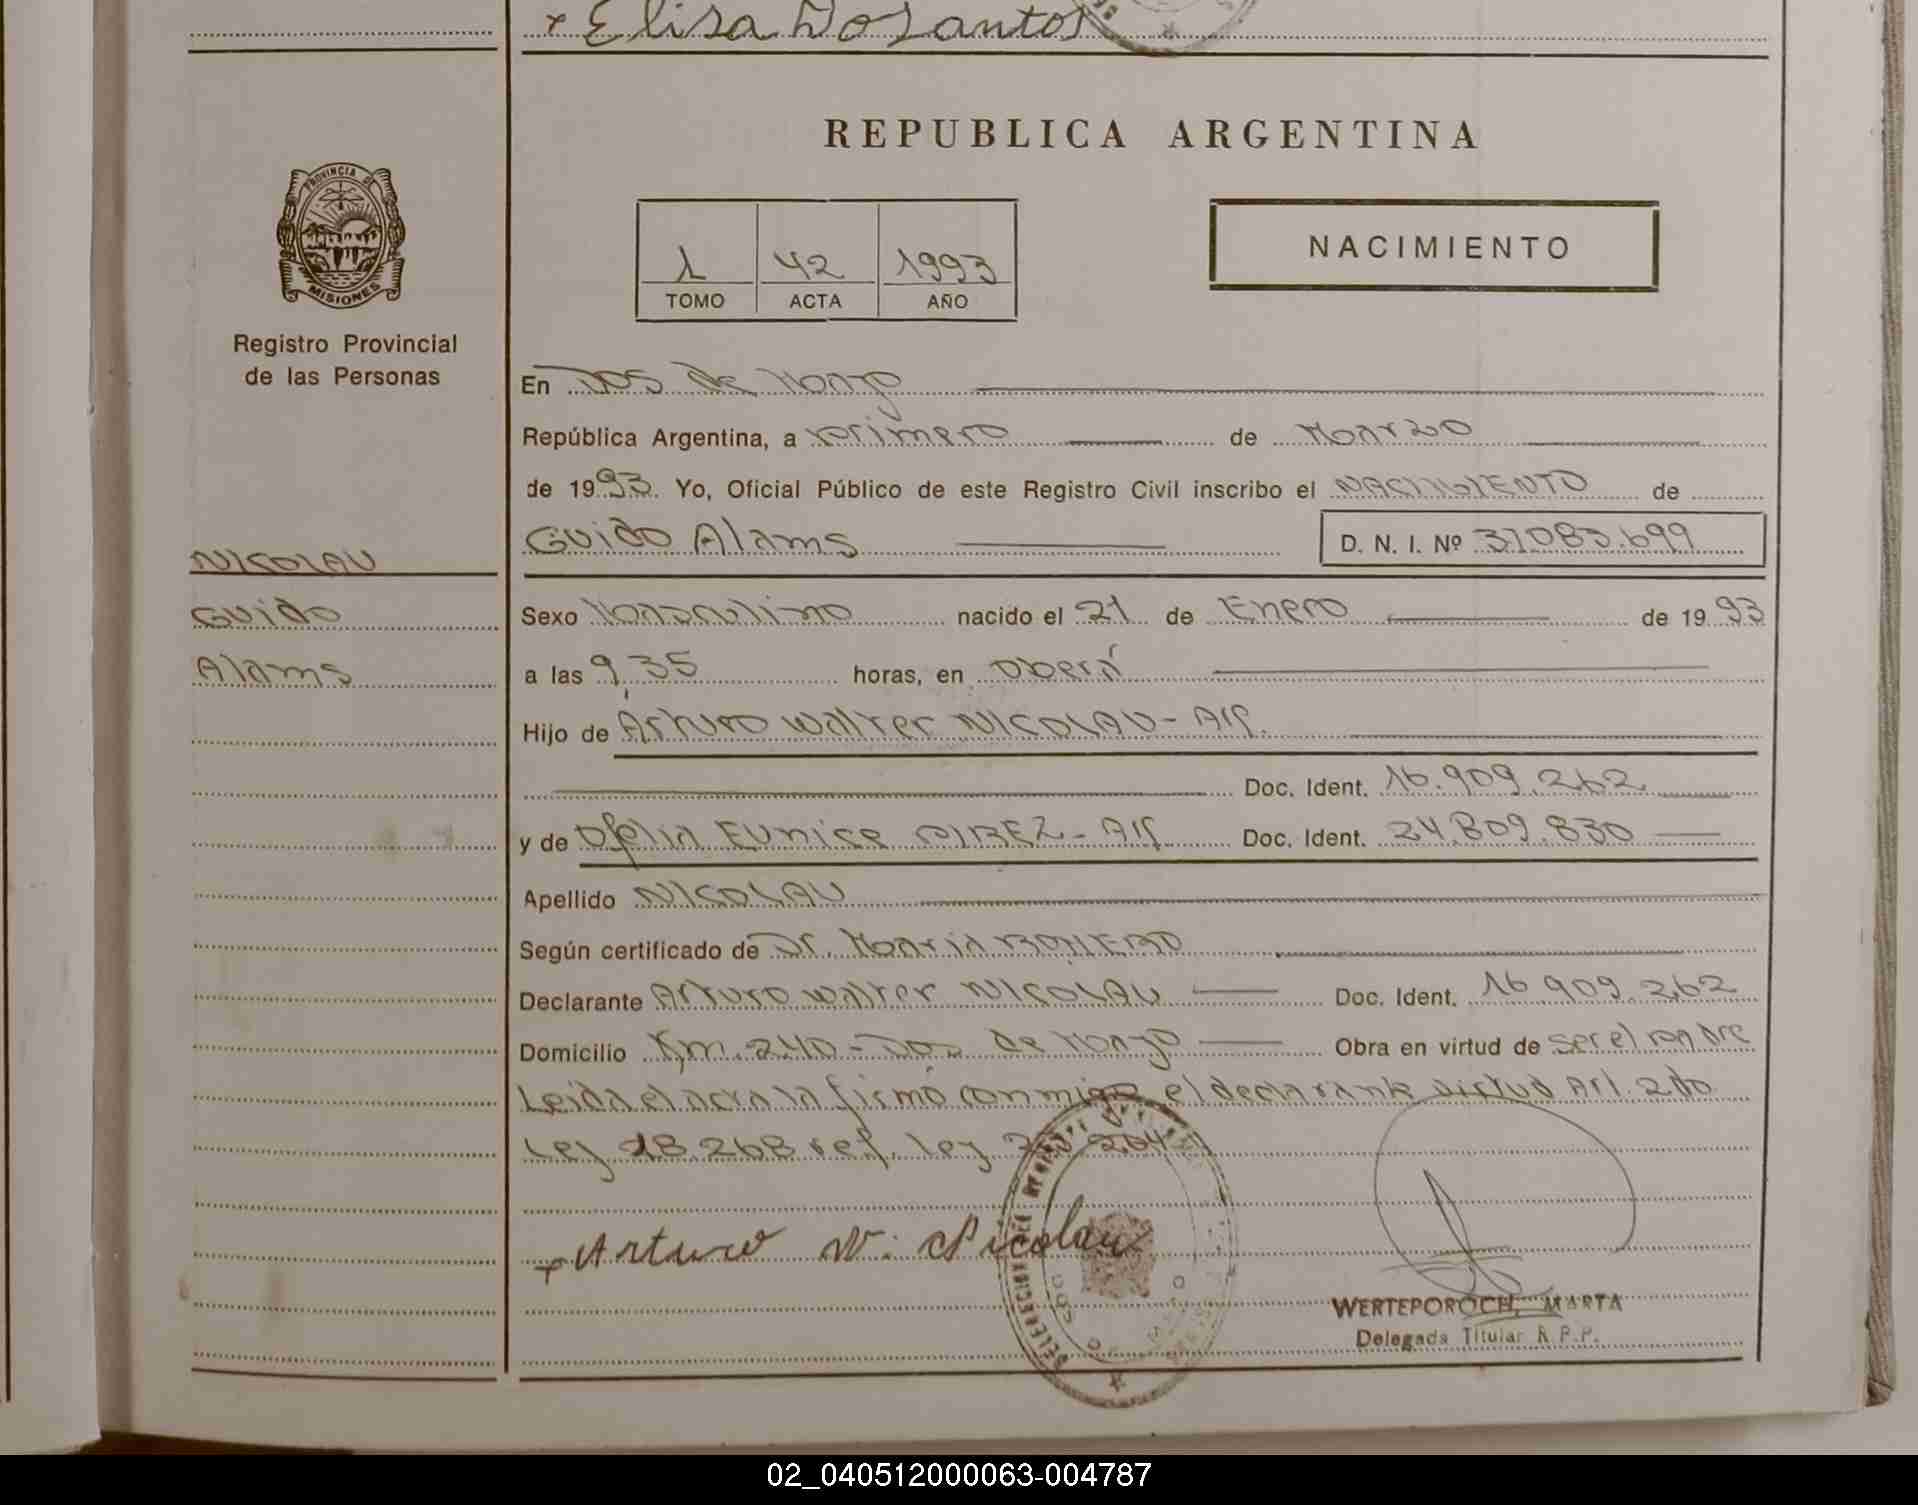 x Elisa Do Santos
REPUBLICA ARGENTINA
PROVINCIA DE
MISIONES
Registro Provincial
de las Personas
1 42 1993
TOMO ACTA AÑO
NACIMIENTO
En Dos de Mayo
República Argentina, a primero de Marzo
de 1993. Yo, Oficial Público de este Registro Civil inscribo el NACIMIENTO de
Guido Alams D. N. I. Nº 37083.699
NICOLAU
Guido
Alams
Sexo Masculino nacido el 21 de Enero de 1993
a las 9,35 horas, en Oberá
Hijo de Arturo Walter NICOLAU - Arg.
Doc. Ident. 16.909.262
y de Ofelia Eunice Doc. Ident. 24.809.830
Apellido NICOLAU
Según certificado de Dr. Maria ROMERO
Declarante Arturo Walter NICOLAU Doc. Ident. 16.909.262
Domicilio Km. 240 - Dos de Mayo Obra en virtud de ser el padre
Leida el acta la firmó conmigo el declarante virtud Art. 2do
Ley 18.268 ref. ley 204
x Arturo W. Nicolau
WERTEPOROCH, MARTA
Delegada Titular R.P.P.
02_040512000063-004787